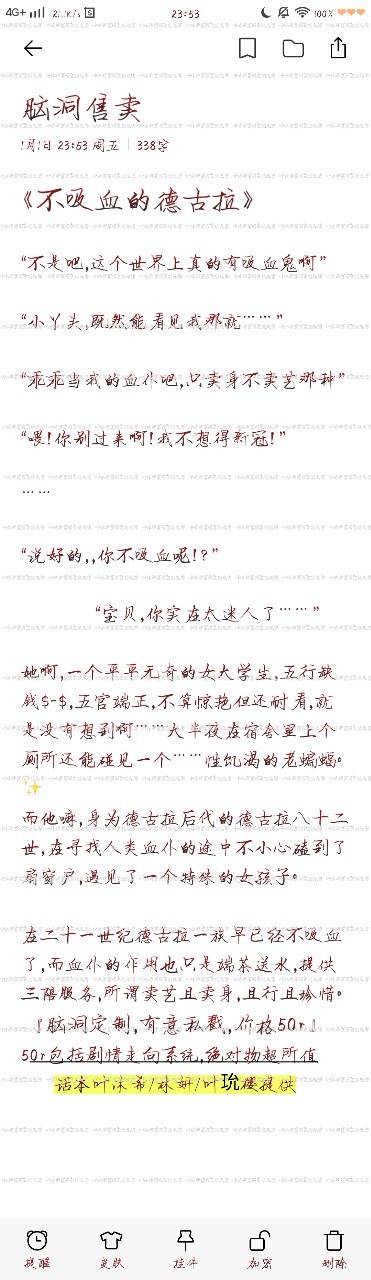 4G+ 23:53 100%
脑洞售卖
1月1日 23:53 周五 | 338字
《不吸血的德古拉》
“不是吧,这个世界上真的有吸血鬼啊”
“小丫头,既然能看见我那就……”
“乖乖当我的血仆吧,只卖身不卖艺那种”
“喂!你别过来啊!我不想得新冠!”
……
“说好的,,你不吸血呢!?”
“宝贝,你实在太迷人了……”
她啊,一个平平无奇的女大学生,五行缺
钱$-$,五官端正,不算惊艳但还耐看,就
是没有想到啊……大半夜在宿舍里上个
厕所还能碰见一个……性饥渴的老蝙蝠。
✨
而他嘛,身为德古拉后代的德古拉八十二
世,在寻找人类血仆的途中不小心磕到了
扇窗户,遇见了一个特殊的女孩子。
在二十一世纪德古拉一族早已经不吸血
了,而血仆的作用也只是端茶送水,提供
三陪服务,所谓卖艺且卖身,且行且珍惜。
『脑洞定制,有意私戳,价格50r』
50r包括剧情走向系统,绝对物超所值
话本叶沐希/秣妍/叶琉璎提供
提醒 皮肤 挂件 加密 删除